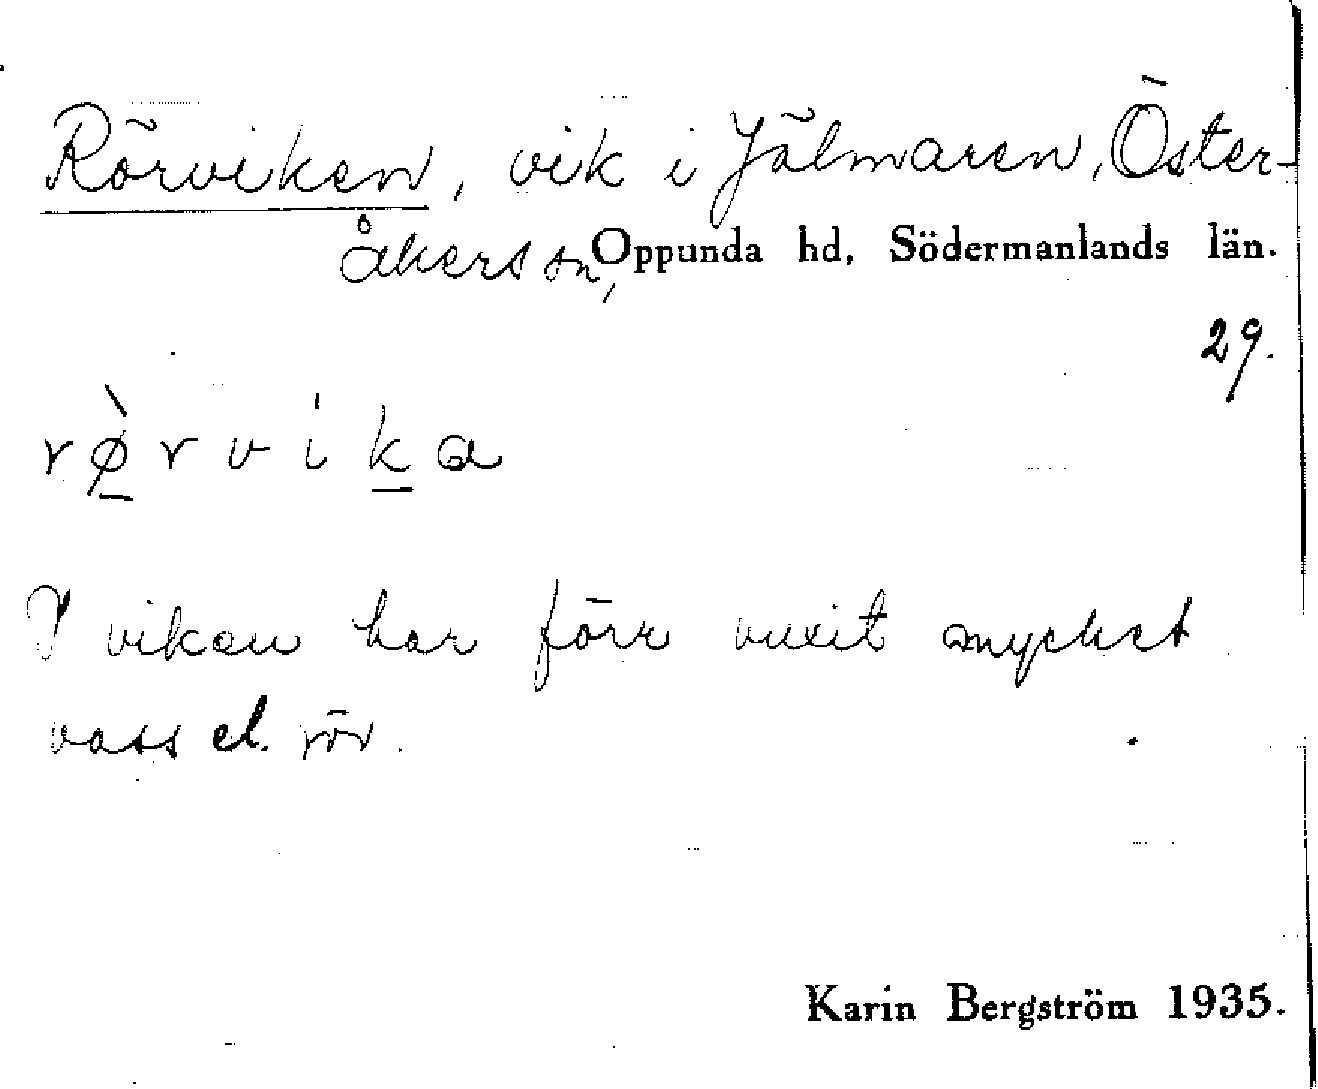 Rörviken, vik i Jälmaren, Öster-
åkers sn, Oppunda hd, Södermanlands län.
29.
rø̀rvika
I viken har förr vuxit mycket
vass el. rör.
Karin Bergström 1935.